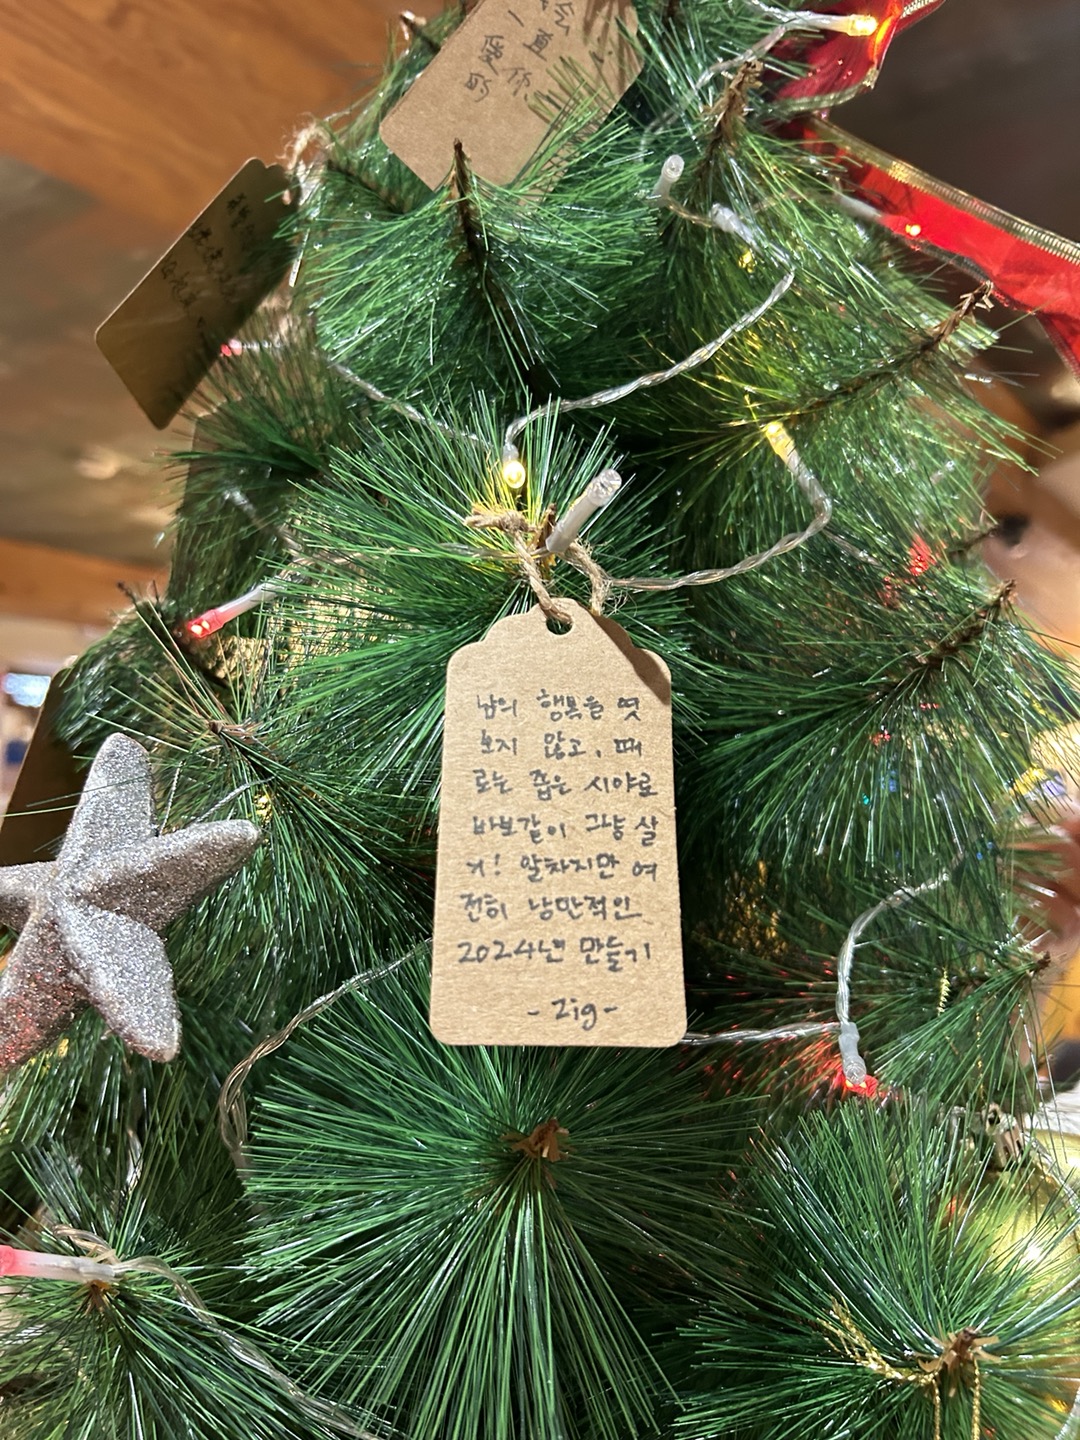 남의 행복을 엿
보지 않고, 때
로는 좁은 시야로
바보같이 그냥 살
거! 알차지만 여
전히 낭만적인
2024년 만들기
- Zig -